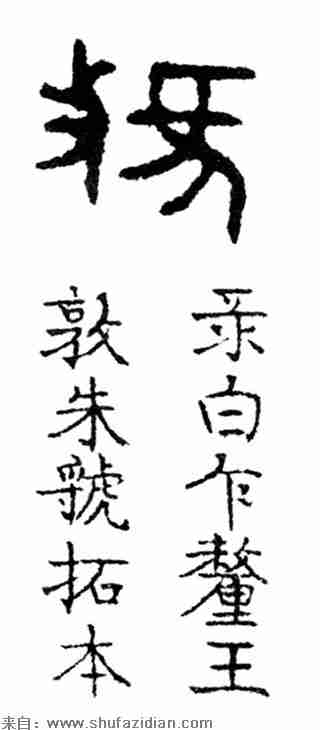 彔白乍釐王
敦朱虢拓本
来自：www.shufazidian.com